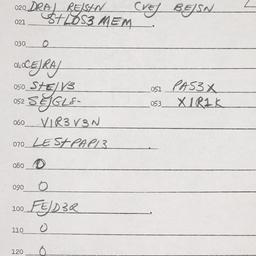 020 DRAJ RE/StN CVEJ BE/SN
021 StLDS3 MEM
030 0
040 CE/RAJ
050 StE/V3 051 PAS3X
052 SE/GLE- 053 XIR1K
060 VIR3V3N
070 LEStPAPI3
080 0
090 0
100 FE/D3R
110 0
120 0